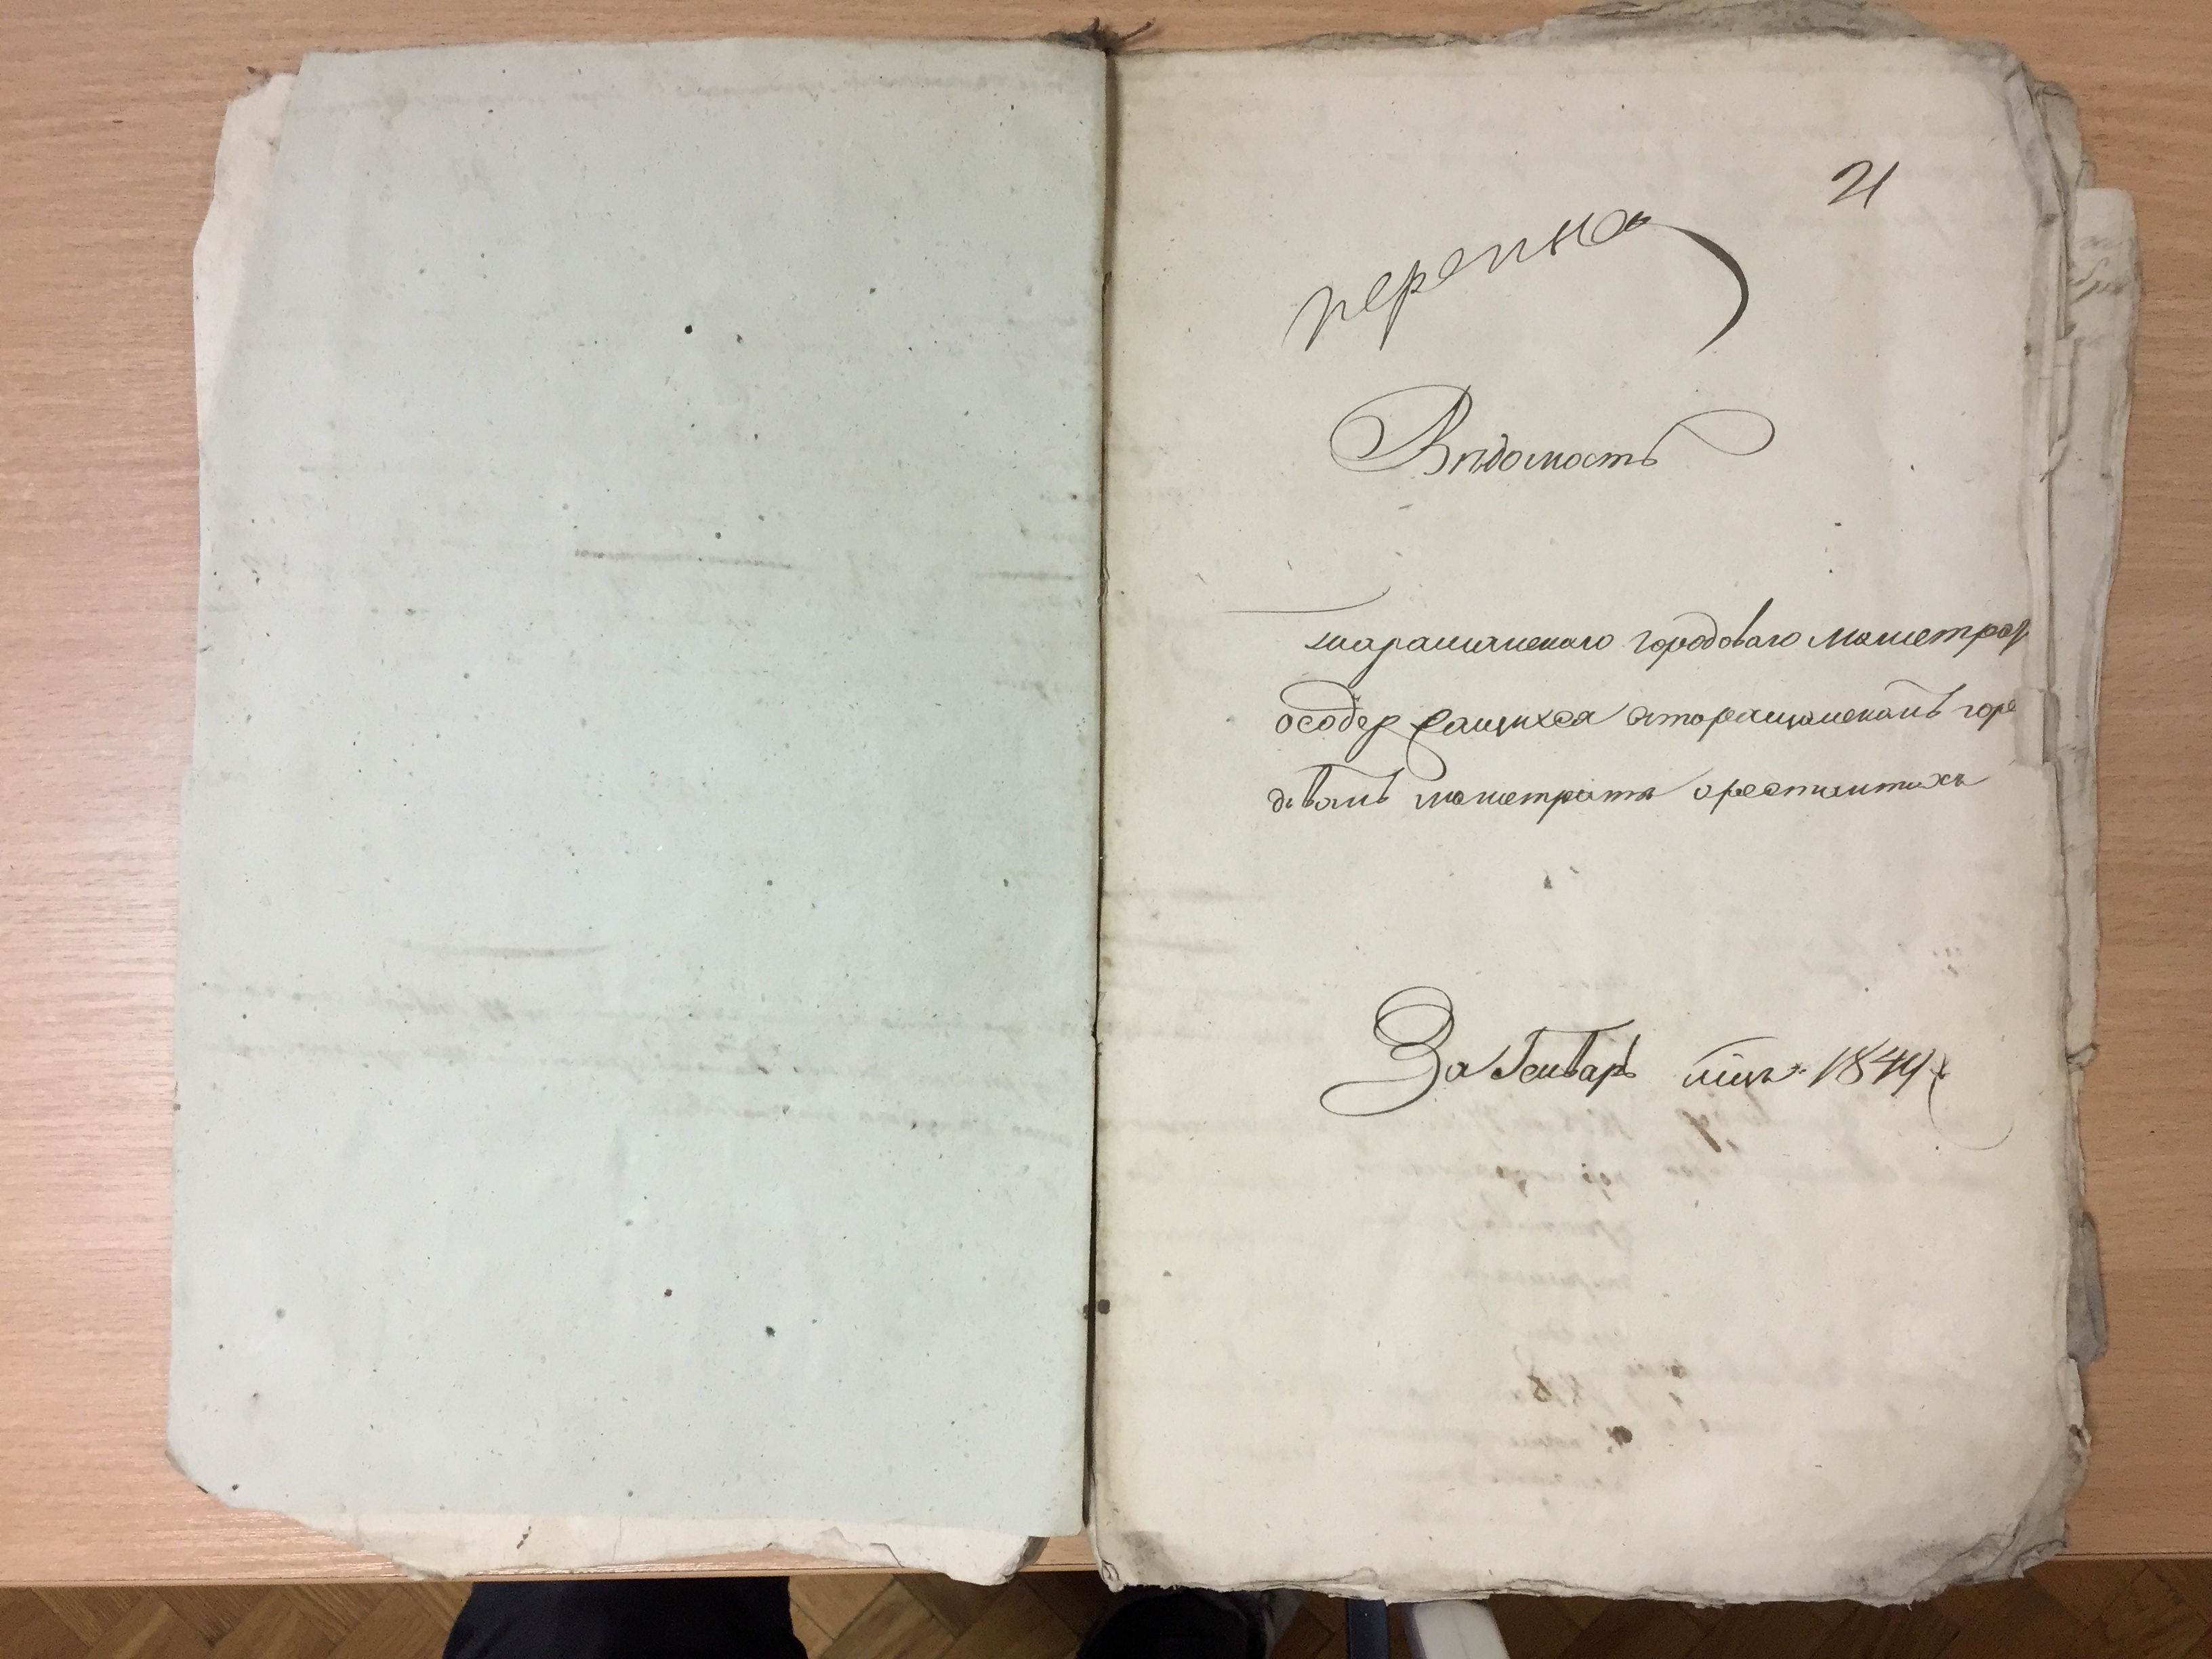 21
Вѣдомость
таращанскаго городоваго магистрат
о содержащихся втаращанскомъ горо
довомъ магистратѣ арестантахъ
За Генварь мцъ 1844